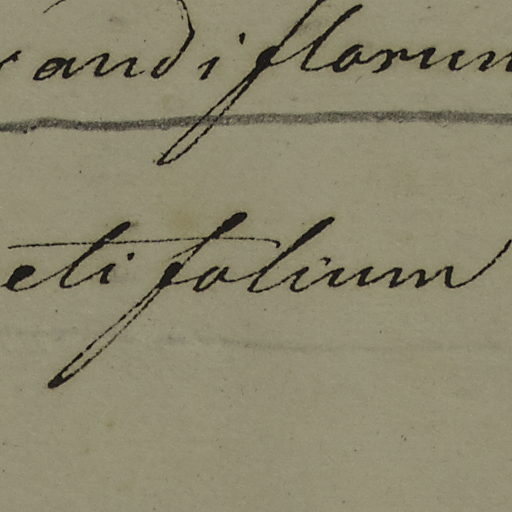 randiflorum
etifolium